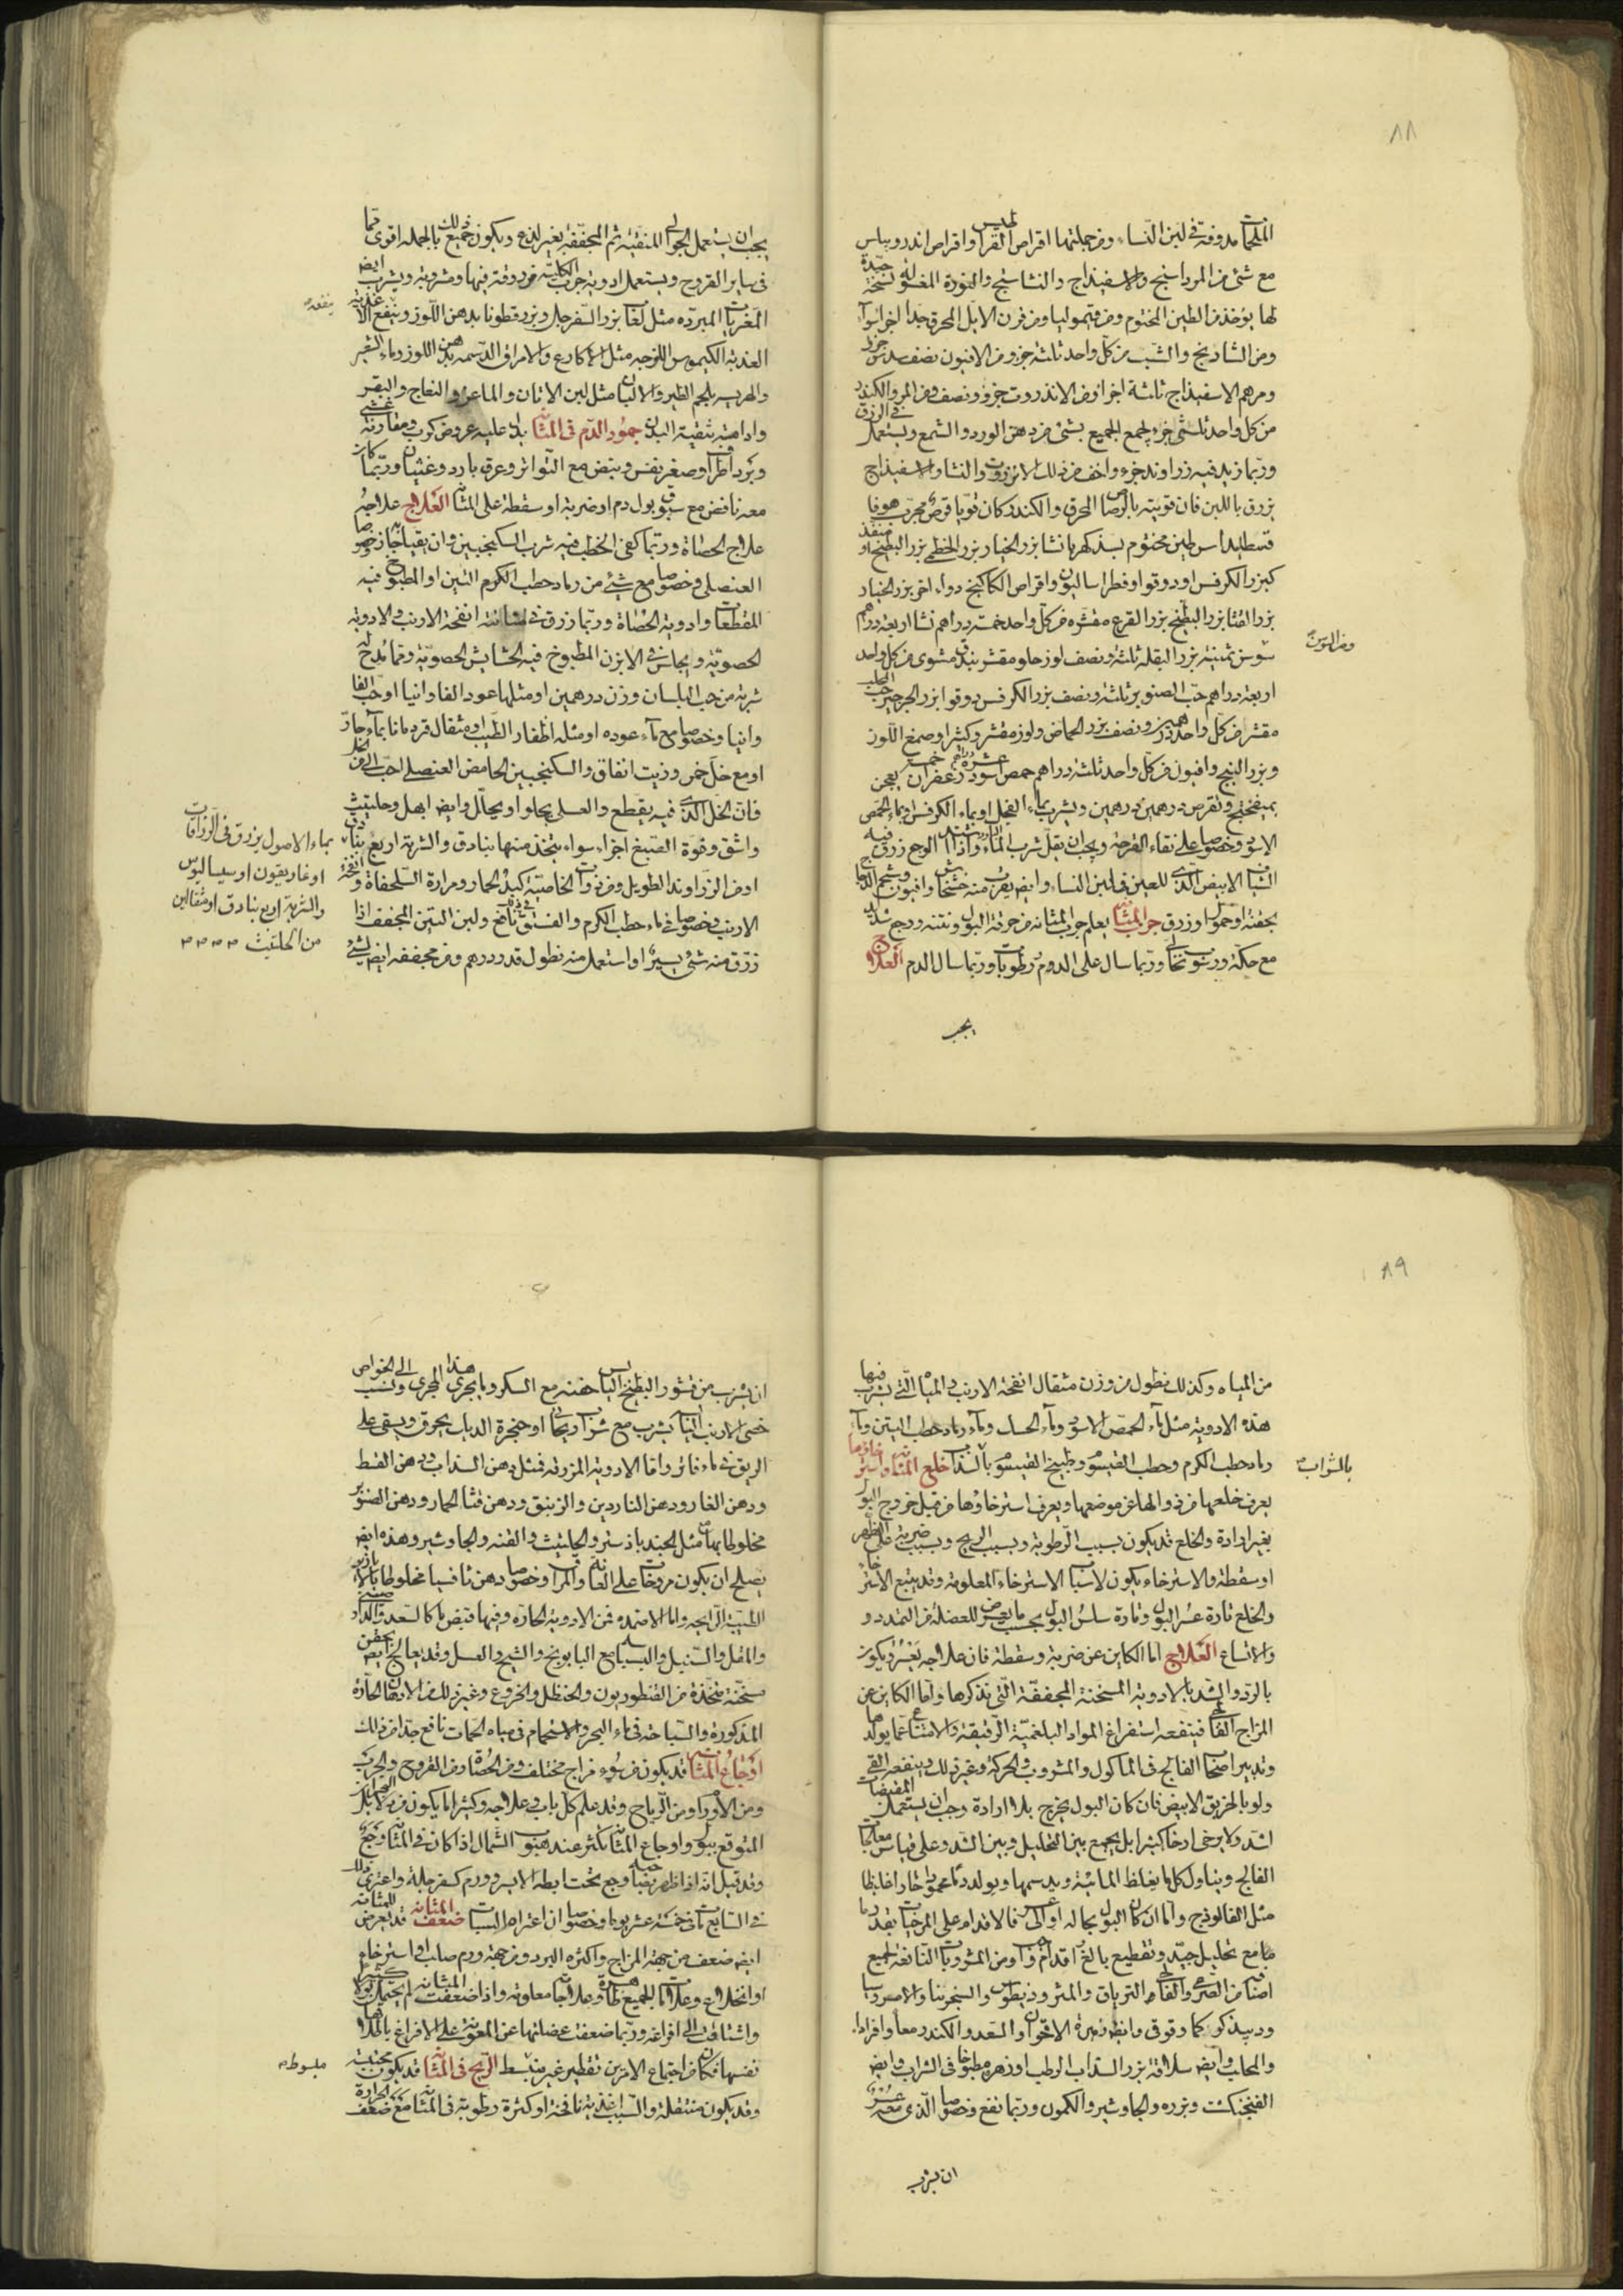 ٨٨
الملحمات مدوفة في لبن النساء ومن جملتها اقراص القراطيس واقراص اندروماس
مع شئ من المرداسنج والاسفيذاج والنشاستج والنورة المغسولة نسخة جيدة
لها يؤخذ من الطين المختوم ومن قيموليا ومن قرن الايل المحرق جدا اجزاء سواء
ومن الشاذنج والشب من كل واحد ثلثة جزو ومن الافيون نصف سدس جزو
ومرهم الاسفيذاج ثلثة اجزا ومن الانذروت جزو ونصف ومن المر والكندر
من كل واحد ثلثى جزء يجمع الجميع بشئ من دهن الورد والشمع ويستعمل في الزرق
وربما زيد فيه زراوند جزء واخف من ذلك الانزروت والنشا والاسفيذاج
يزرق باللبن فان قويته بالرصاص المحرق والكندر كان قويا قرص مجرب هوفا
قسطيداس طين مختوم بسذ كهربا نشا بزر الخيار بزر الخطمي بزر البطيخ او منفذ
كبزر الكرفس او دوقو او فطراساليون واقراص الكاكنج دواء اخر بزر الخيار
بزر القثا بزر البطيخ بزر القرع مقشرة من كل واحد خمسة دراهم نشا اربعة دراهم
سوسن ثمنية بزر البقلة ثلثة ونصف لوز حلو مقشر بندق مشوى من كل واحد
ومن السوس
اربعة دراهم حب الصنوبر ثلثة ونصف بزر الكرفس دوقو ابزر الجرجير حب المحلب
مقشر من كل واحد درهمين ونصف بزر الحماض ولوز مقشر وكثيرا وصمغ اللوز
وبزر البنج وافيون من كل واحد ثلثة دراهم حمص اسود عشرة دراهم زعفران خمسة يعجن
بميفختج ويقرص درهمين درهمين ويشرب بماء الفجل او بماء الكرفس او بماء الحمص
الاسود وخصوصا على نقاء القرحة ويجب ان يقل شرب الماء واذا اشتد الوجع زرق فيه
الشياف الابيض الذى للعين في لبن النساء وايض يقرب منه خشخاش وافيون وشحم الدجاج
بحقنة او حمول او زرق جرب المثانة يعلم جرب المثانه من حرقة البول ونتنه ووجع شديد
مع حكة ورسوب نخالى وربما سال على الدوم رطوبات وربما سال الدم العلاج
يجب
يجب ان يستعمل الجوالى المنقية ثم المجففة بغير لذع ويكون جميع ذلك بالجملة اقوى مما
في ساير القروح ويستعمل ادوية جرب الكلية مزروقة فيها ومشروبة ويشرب ايض
المغريات المبردة مثل لعاب بزر السفرجل وبزرقطونا بدهن اللوز وينفع الاغذية
ينفعه
العذبة الكيموس اللزجه مثل الاكارع والامراق الدسمه بدهن اللوز وماء الشعير
والهريسه بلحم الطير والالبان مثل لبن الاتان والماعز والنعاج والبقر
وادامة تنقية البدن جمود الدم في المثانة يدل عليه عروض كرب ومقارنة غشى
وبرد اطراف وصغر نفس ونبض مع التواتر وعرق بارد وغثيان وربما كان
معه نافض مع سبق بول دم او ضربة او سقطة على المثانة العلاج علاجه
علاج الحصاة وربما كفى الخطب فيه شرب السكنجبين وان يقيا به او خصوصا
العنصلى وخصوصا مع شئ من رماد حطب الكرم التين او المطبوخ فيه
المقطعات وادوية الحصاة وربما زرق في مثانته انفحة الارنب والادوية
الحصوية ويجلس في الابزن المطبوخ فيه الحشايش الحصوية ومما يمدح له
شربة من حب البلسان وزن درهمين او مثلها عود الفاوانيا او حب الفا
وانيا وخصوصا مع ماء عوده او مثله اظفار الطيب او مثقال قردمانا بماء حار
او مع خل خمر وزيت انفاق والسكنجبين الحامض العنصلى احب الى من الخل
فان الخل الذى فيه يقطع والعسل يجلو او يحلل وايض ابهل وحلتيت
واشق وفوة الصبغ اجزاء سواء يتخذ منها بنادق والشربة اربع بنادق
او من الزراوند الطويل ومن ذوات الخاصية كبد الحمار ومرارة السلحفاة وانفحة
الارنب وخصوصا في ماء حطب الكرم والفستق ناتج ولبن التين المجفف اذا
زرق منه شئ يسير او استعمل منه نطول قدر درهم ومن مجففه ايض لشئ
بماء الاصول يزرق في الزراقات
او غاريقون او سيساليوس
والشربة اربع بنادق او مثقالين
من الحلتيت
٨٩
من المياه وكذلك نطول من وزن مثقال انفحة الارنب في المياه التي يشرب فيها
هذه الادوية مثل ماء الحمص الاسود وماء الحسك وماء رماد حطب التين وماء
رماد حطب الكرم وحطب القيسوم وطبيخ القيسوم بالسذاب خلع المثانة واسترخاؤها
بالشراب
يعرف خلعها من زوالها عن موضعها ويعرف استرخاؤها من قبل خروج البول
بغير ارادة والخلع قد يكون بسبب الرطوبة وبسبب الريح وبسبب ضربة على الظهر
او سقطة والاسترخاء يكون لاسباب الاسترخاء المعلومة وقد يتبع الاسترخاء
والخلع تارة عسر البول وتارة سلس البول بحسب ما يعرض للعضلة من التمدد و
والاتساع العلاج اما الكاين عن ضربة وسقطة فان علاجه يعسر ويكون
بالرد والشد بالادوية المسخنة المجففة التى نذكرها واما الكاين عن
المزاج الفالجى فينفعه استفراغ المواد البلغمية الرقيقة والامتناع عما يولدها
وتدبير اصحاب الفالج في الماكول والمشروب والحركة وغير ذلك وينفعه القى
ولو بالخربق الابيض فان كان البول يخرج بلا ارادة وجب ان يستعمل المقبضات
اشد ولا يرخى ارخا كثيرا بل يجمع بين التحليل وبين الشد وعلى قياس معالجات
الفالج ويتناول كل ما يغلظ المائية ويدسمها ويولد دما محمودا حارا غليظا
مثل الفالوذج واما ان كان البول بحاله او عسر فالاقدام على المرخيات بقدر ما
ما مع تحليل جيد وتقطيع بالغ اقدام واف ومن المشروبات النافعة لجميع
اصناف من الصرع والفالج الترياق والمثروذيطوس والسنجرينا والامروسيا
ودبيد كركم وقوقى وايض زهرة الاقحوان والسعد والكندر معا وافرادا
والمحلب وايض سلاقة بزر السذاب الرطب او زهره مطبوخا في الشراب وايض
الفنجنكشت وبزره والجاوشير والكمون وربما نفع وخصوصا الذى معه عسر
ان يشرب
ان يشرب من قشور البطيخ اليابس حفنة مع السكر وما يجرى هذا المجرى ونسب الى الخواص
خصى الارنب اليابس يشرب مع شراب ريحانى او حنجرة الديك يحرق ويسقى على
الريق في ماء فاتر واما الادوية المزرقة فمثل دهن السذاب ودهن القسط
ودهن الغار ودهن الناردين والزنبق ودهن قثا الحمار ودهن الصنوبر
مخلوطا بها مثل الجندبادستر والحلتيت والقنه والجاوشير وهذه ايض
يصلح ان يكون مروخات على العانة والمراق وخصوصا دهن ثافسيا مخلوطا بالابازير
الطيبة الرايحة واما الاضمده فمن الادوية الحارة وفيها قبض ما كالسعد والدارصينى
والمقل والسنبل والبسباسه مع البابونج والشيح والعسل وقد يعالج ايض بحقن
مسخنة متخذة من القنطوريون والحنظل والخروع وغير ذلك من الادهان الحارة
المذكورة والسباحة في ماء البحر والاستحمام في مياه الحمات نافع جدا من ذلك
اوجاع المثانة قد يكون من سوء مزاج مختلف ومن الحصاة ومن القروح والجرب
ومن الاورام ومن الرياح وقد علم كل باب وعلاجه وكثيرا ما يكون من دلايل البحران
المتوقع ببول واوجاع المثانة تكثر عند هبوب الشمال اذا كان في المثانة وجع
وقد قيل انه اذا ظهر بصاحبه وجع تحت ابطه الايسر وورم كسفرجلة واعترى ذلك
في السابع مات في خمسة عشر يوما وخصوصا ان اعتراه السبات ضعف المثانة قد يعرض للمثانه
ايض ضعف من جهة المزاج واكثره البرد ومن جهة ورم صلب او استرخاء
او انخلاع وعلامات الجميع ظاهرة وعلاجاتها معلومة واذا ضعفت المثانة لم يحتمل بولا كثيرا
واشتاقت الى افراغه وربما ضعفت عضلتها عن المعونة على الافراغ باطلاقها
نفسها فكان من اجتماع الامرين تقطير غير منبسط الريح في المثانة قد يكون محتبسة
مبسوط
وقد يكون منتقلة والسبب اغذية نافخة او كثرة رطوبة في المثانة مع ضعف الحرارة